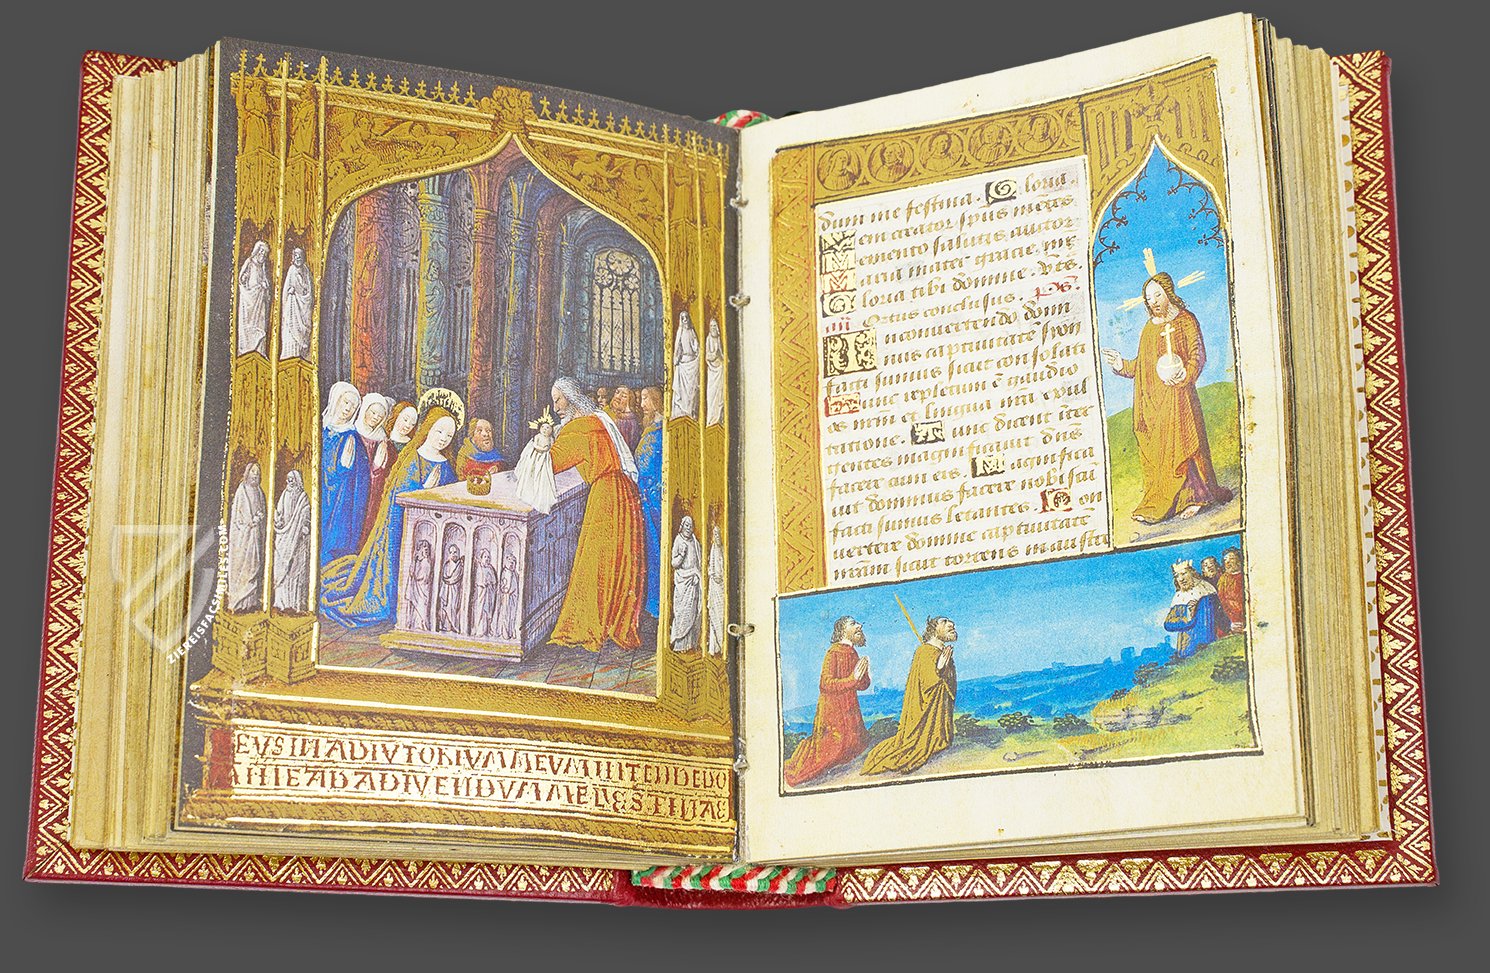 EUS IN ADIUTORIUM MEUM INTENDE DO
MINE AD ADIUVENDUM ME FESTINA
dum me festina. Gloria.
Veni creator spūs mētes
Memento salutis auctor
Maria mater gracie. vs.
Gloria tibi domine. vrs.
Ortus conclusus. ps.
IN convertendo dom
nus captiuitatē syon
facti sumus sicut consolati
Tunc repletum ē gaudio
os nrm̄ et lingua nr̄a exul
tatione. Tunc dicent īter
gentes magnificauit dn̄s
facere cum eis. Magnifica
uit dominus facere nobiscū
facti sumus letantes. Con
uertere domine captiuitatē
nr̄am sicut torrens in austro
ZIEREISFACSIMILES.COM